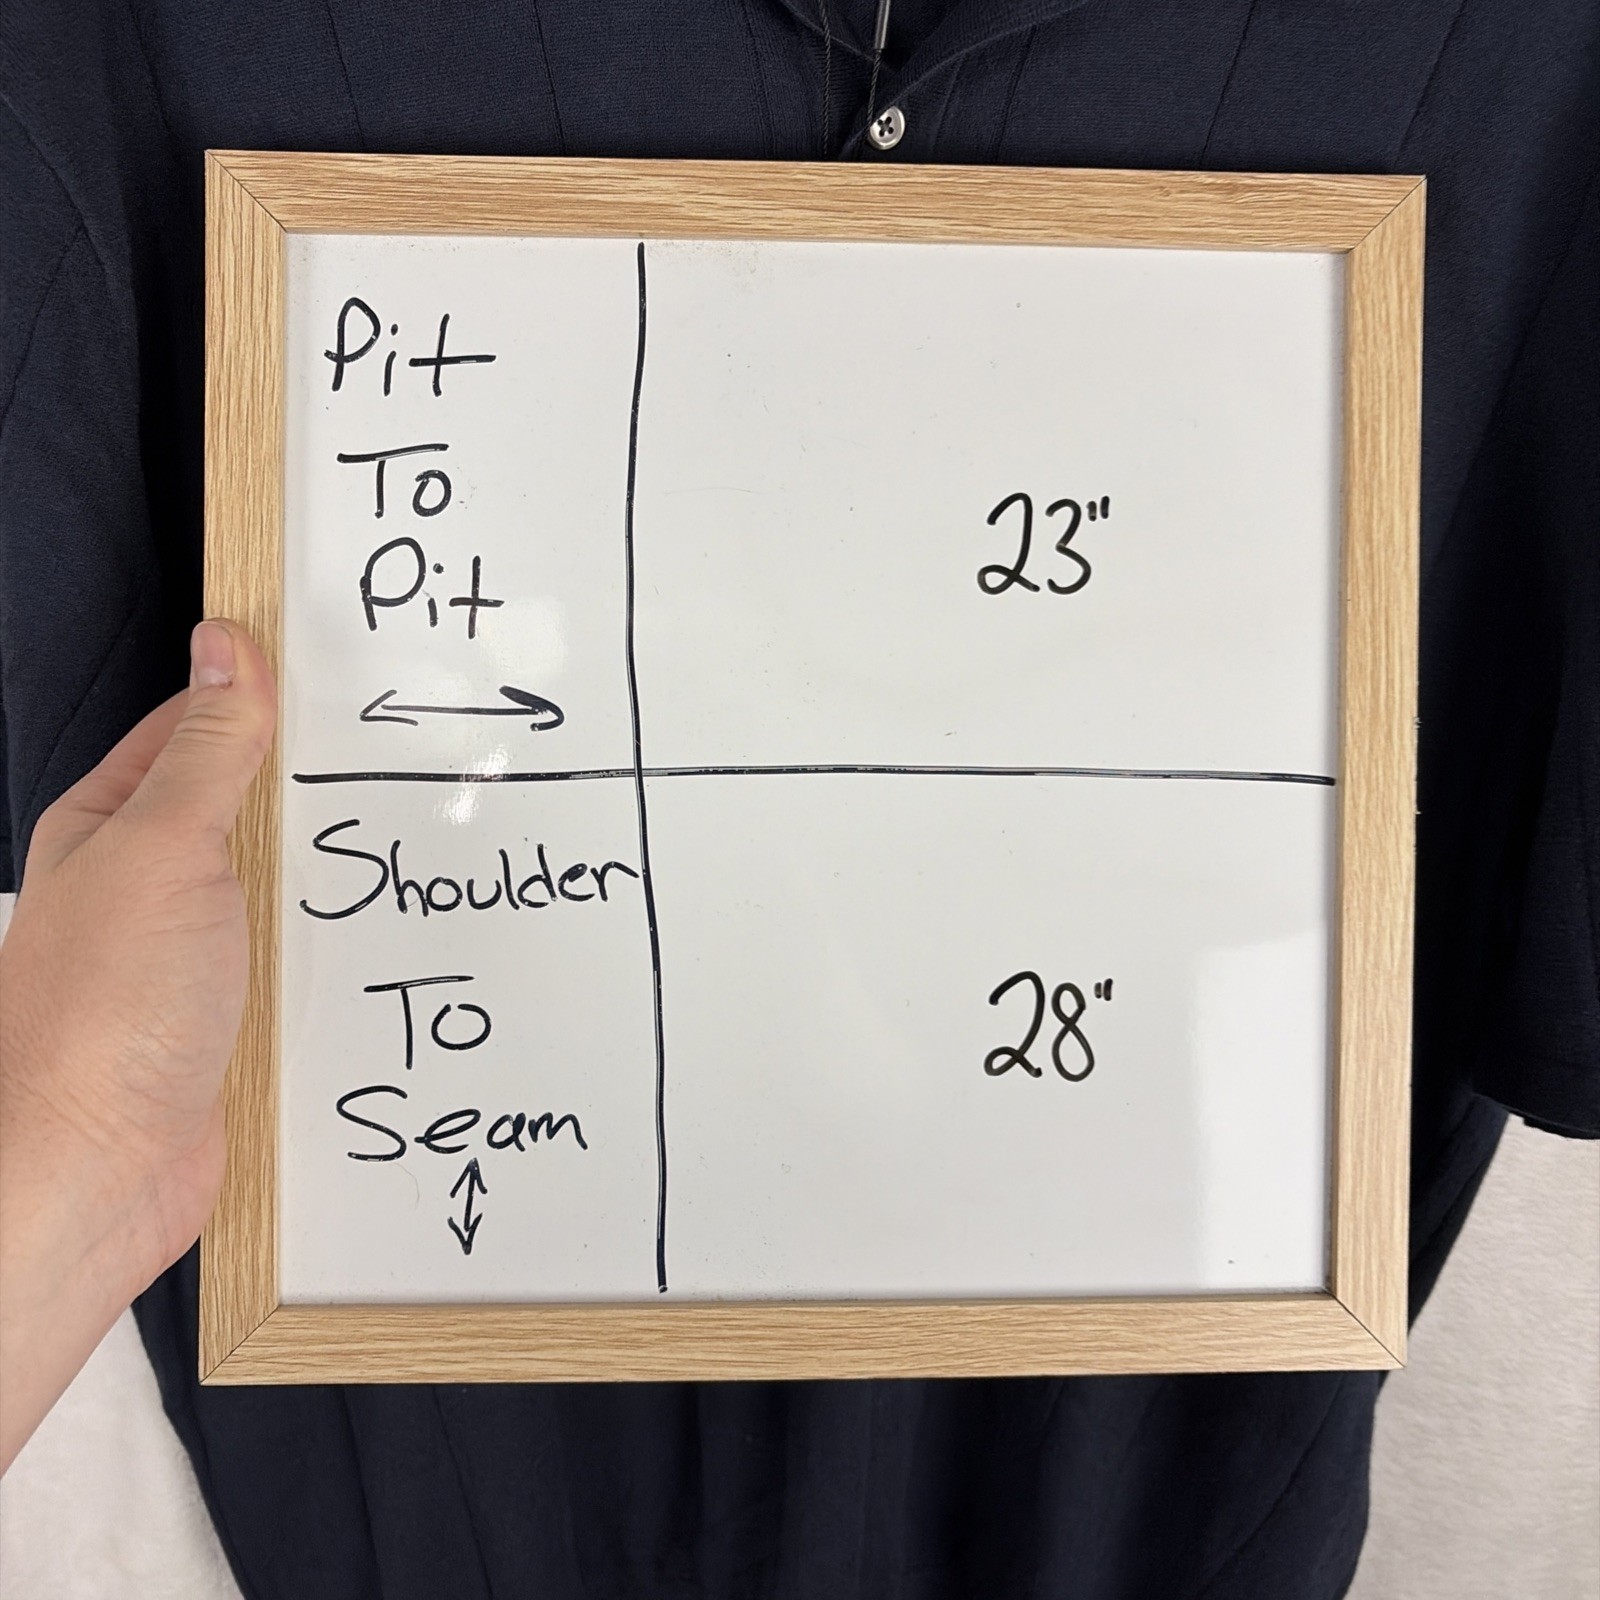 Pit
To
Pit
23"
Shoulder
To
Seam
28"